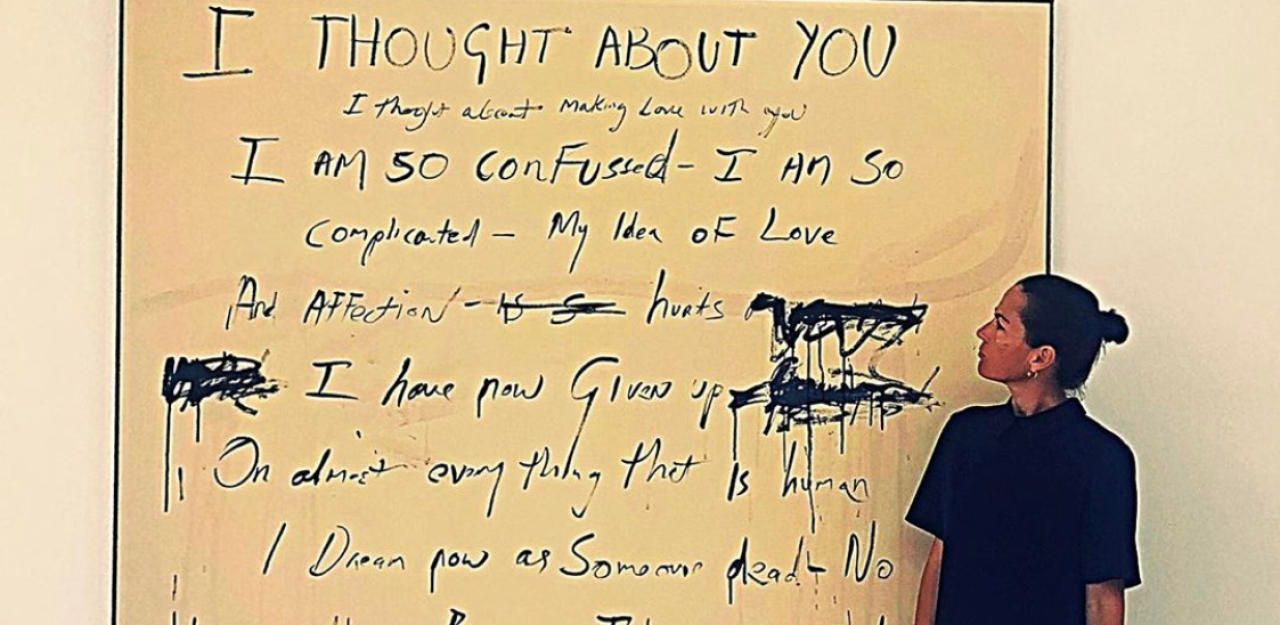 I THOUGHT ABOUT YOU
I thoght about making Love with you
I AM SO CONFUSSed - I AM SO
Complicated - My Idea OF Love
And AFFection - hurts
I have now Given up
On almost everything that Is human
I Dream now as Someone dead - No